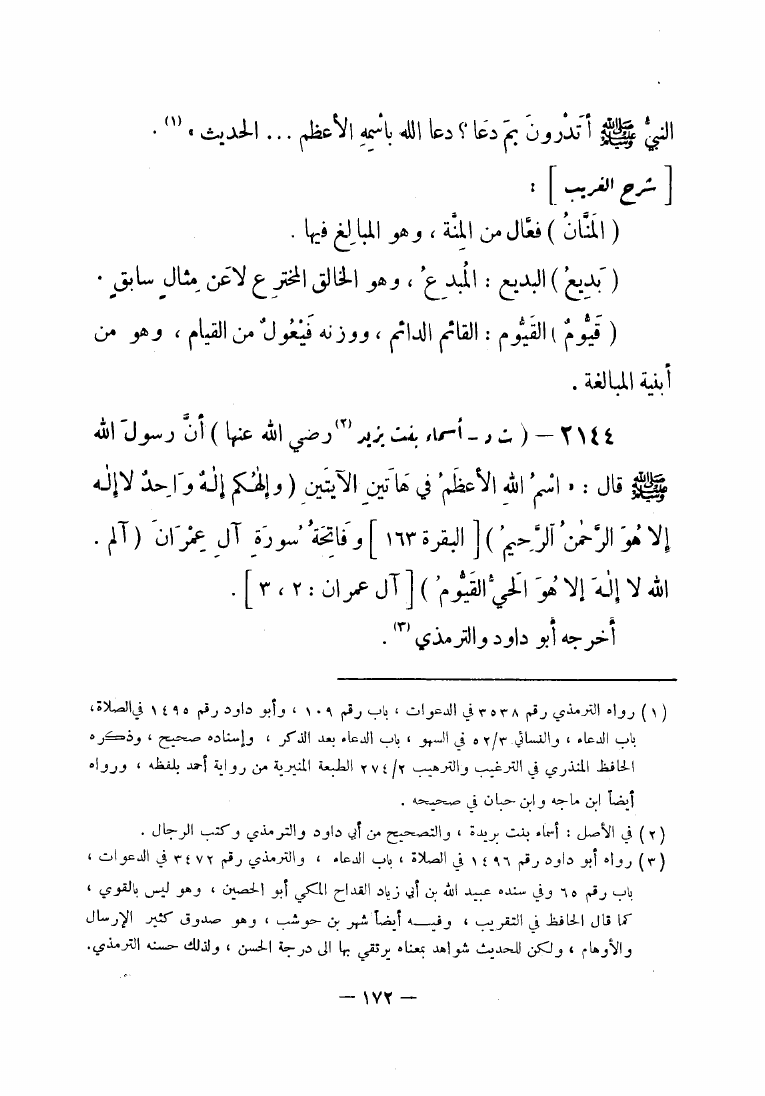 النبيُّ ﷺ أَتَدْرُونَ بِمَ دَعَا ؟ دعا الله باسْمِهِ الأعظم ... الحديث » (١) .
[ شرح الغريب ] :
( المَنَّانُ ) فعَّال من المِنَّة ، وهو المبالِغ فيها .
( بَدِيعُ ) البديع : المُبدِعُ ، وهو الخالق المخترِع لا عَن مِثالٍ سابقٍ .
( قَيُّومٌ ) القَيُّوم : القائم الدائم ، ووزنه فَيْعُولٌ من القيام ، وهو من
أبنية المبالغة .
٢١٤٤ – ( ت د – أسماء بنت يزيد (٢) رضي الله عنها ) أنَّ رسولَ الله
ﷺ قال : « اسْمُ اللهِ الأعظَمُ في هَاتَينِ الآيتَينِ ( وإلٰهُكم إلٰهٌ وَاحِدٌ لا إلٰه
إلا هُوَ الرَّحْمٰنُ الرَّحِيمُ ) [ البقرة ١٦٣ ] وفَاتِحَةُ سُورَةِ آلِ عِمْرَانَ ( آلم .
الله لا إلٰهَ إلا هُوَ الحَيُّ القَيُّومُ ) [ آل عمران : ٢ ، ٣ ] .
أخرجه أبو داود والترمذي (٣) .
(١) رواه الترمذي رقم ٣٥٣٨ في الدعوات ، باب رقم ١٠٩ ، وأبو داود رقم ١٤٩٥ في الصلاة ،
باب الدعاء ، والنسائي ٥٢/٣ في السهو ، باب الدعاء بعد الذكر ، وإسناده صحيح ، وذكره
الحافظ المنذري في الترغيب والترهيب ٢٧٤/٢ الطبعة المنيرية من رواية أحمد بلفظه ، ورواه
أيضاً ابن ماجه وابن حبان في صحيحه .
(٢) في الأصل : أسماء بنت بريدة ، والتصحيح من أبي داود والترمذي وكتب الرجال .
(٣) رواه أبو داود رقم ١٤٩٦ في الصلاة ، باب الدعاء ، والترمذي رقم ٣٤٧٢ في الدعوات ،
باب رقم ٦٥ وفي سنده عبيد الله بن أبي زياد القداح المكي أبو الحصين ، وهو ليس بالقوي ،
كما قال الحافظ في التقريب ، وفيه أيضاً شهر بن حوشب ، وهو صدوق كثير الإرسال
والأوهام ، ولكن للحديث شواهد بمعناه يرتقي بها الى درجة الحسن ، ولذلك حسنه الترمذي.
– ١٧٢ –